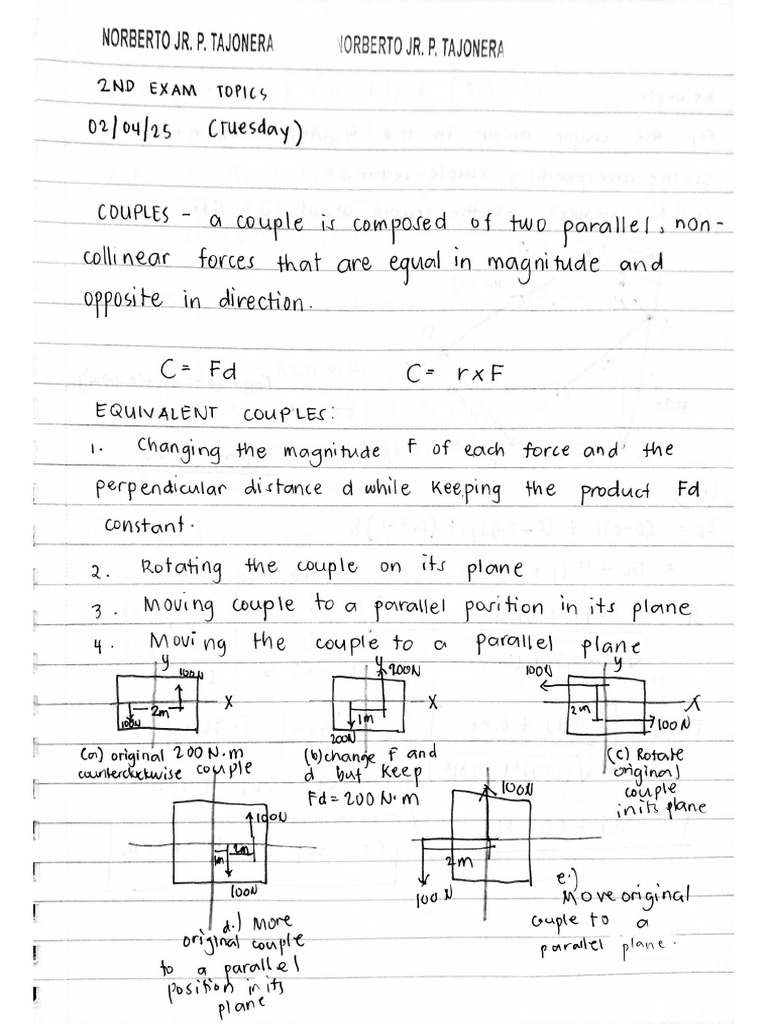 NORBERTO JR. P. TAJONERA NORBERTO JR. P. TAJONERA
2ND EXAM TOPICS
02/04/25 (Tuesday)
COUPLES - a couple is composed of two parallel, non-
collinear forces that are equal in magnitude and
opposite in direction.
C = Fd C = r x F
EQUIVALENT COUPLES:
1. Changing the magnitude F of each force and the
perpendicular distance d while keeping the product Fd
constant.
2. Rotating the couple on its plane
3. Moving couple to a parallel position in its plane
4. Moving the couple to a parallel plane
y 100N x 2m 100N
y 200N x 1m 200N
100N y 2m x 100N
(a) original 200 N·m
counterclockwise couple
(b) change f and
d but keep
Fd = 200 N·m
(c) Rotate
original
couple
in its plane
100N 2m 1m 100N
100N 2m 100N
d.) More
original couple
to a parallel
position in its
plane
e.)
Move original
couple to a
parallel plane.